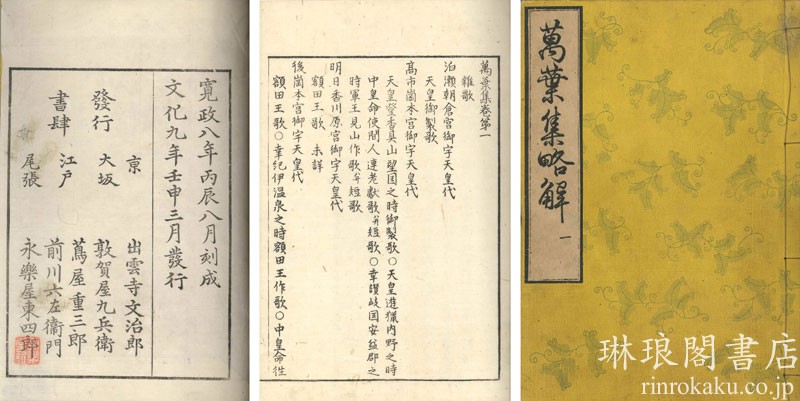 寛政八年丙辰八月刻成
文化九年壬申三月發行
發行
書肆
京 出雲寺文治郎
大坂 敦賀屋九兵衛
江戸 蔦屋重三郎
前川六左衛門
尾張 永樂屋東四郎
萬葉集卷第一
雜歌
泊瀬朝倉宮御宇天皇代
天皇御製歌
高市崗本宮御宇天皇代
天皇登香具山望國之時御製歌〇天皇遊獵内野之時
中皇命使間人連老獻歌并短歌〇幸讃岐國安益郡之
時軍王見山作歌并短歌
明日香川原宮御宇天皇代
額田王歌 未詳
後崗本宮御宇天皇代
額田王歌〇幸紀伊温泉之時額田王作歌〇中皇命往
萬葉集略解 一
琳琅閣書店
rinrokaku.co.jp